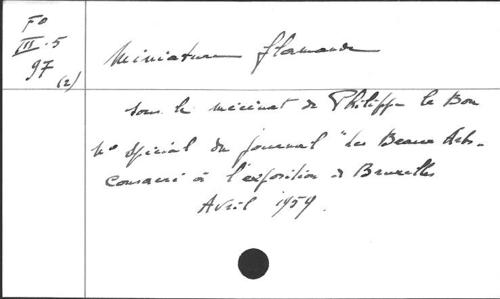 Fo
III. 5
97
(2)
Miniature flamande
sous le mécénat de Philippe le Bon
N° spécial du journal "Les Beaux Arts.
consacré à l'exposition de Bruxelles
Avril 1959.